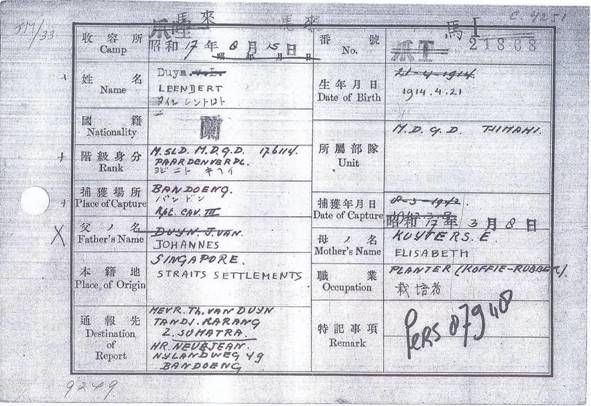 馬來
馬 I
C. 4251
5M/33
收容所
Camp
昭和 17年 8月 15日
番號
No.
21808
姓名
Name
Duyn
LEENDERT
生年月日
Date of Birth
21-4-1914
1914.4.21
國籍
Nationality
蘭
階級身分
Rank
M.SLD. M.D.G.D. 176114.
PAARDENVERPL.
所屬部隊
Unit
M.D.G.D. TJIMAHI.
捕獲場所
Place of Capture
BANDOENG.
バンドン
CAV. III
捕獲年月日
Date of Capture
8-3-1942
昭和 17年 3月 8日
父ノ名
Father's Name
DUYN. J. VAN.
JOHANNES
母ノ名
Mother's Name
KUYPERS. E.
ELISABETH
本籍地
Place of Origin
SINGAPORE.
STRAITS SETTLEMENTS
職業
Occupation
PLANTER (KOFFIE-RUBBER).
栽培者
通報先
Destination
of
Report
MEVR. TH. VAN DUYN
TANDJ. KARANG
Z. SUMATRA.
HR. NEUEJEAN.
NYLANDWEG 49
BANDOENG
特記事項
Remark
Pers 07948
9249.